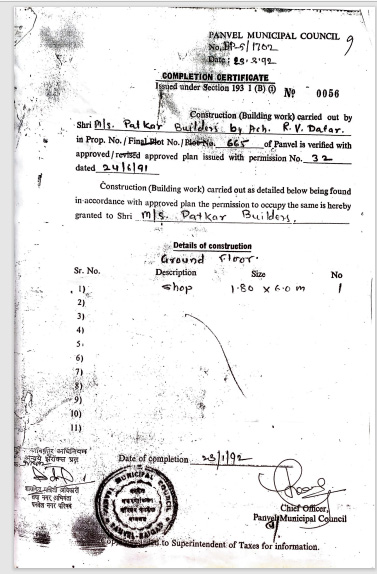 PANVEL MUNICIPAL COUNCIL 9
No. BP-5/1702
Date : 23.3.92
COMPLETION CERTIFICATE
Issued under Section 193 1 (B) (i) No 0056
Construction (Building work) carried out by
Shri M/s. Patkar Builders by Ach. R. V. Datar.
in Prop. No./ Final Plot No./ Plot No. 665 of Panvel is verified with
approved/ revised approved plan issued with permission No. 32
dated 24/6/91
Construction (Building work) carried out as detailed below being found
in accordance with approved plan the permission to occupy the same is hereby
granted to Shri M/s. Patkar Builders.
Details of construction
Ground Floor.
Sr. No. Description Size No
1) Shop 1.80 x 6.0 m 1
2)
3)
4)
5.
6)
7)
8)
9)
10)
11)
Date of completion 23/1/92
PANVEL MUNICIPAL COUNCIL
PANVEL-RAIGAD
Chief Officer,
Panvel Municipal Council
to Superintendent of Taxes for information.